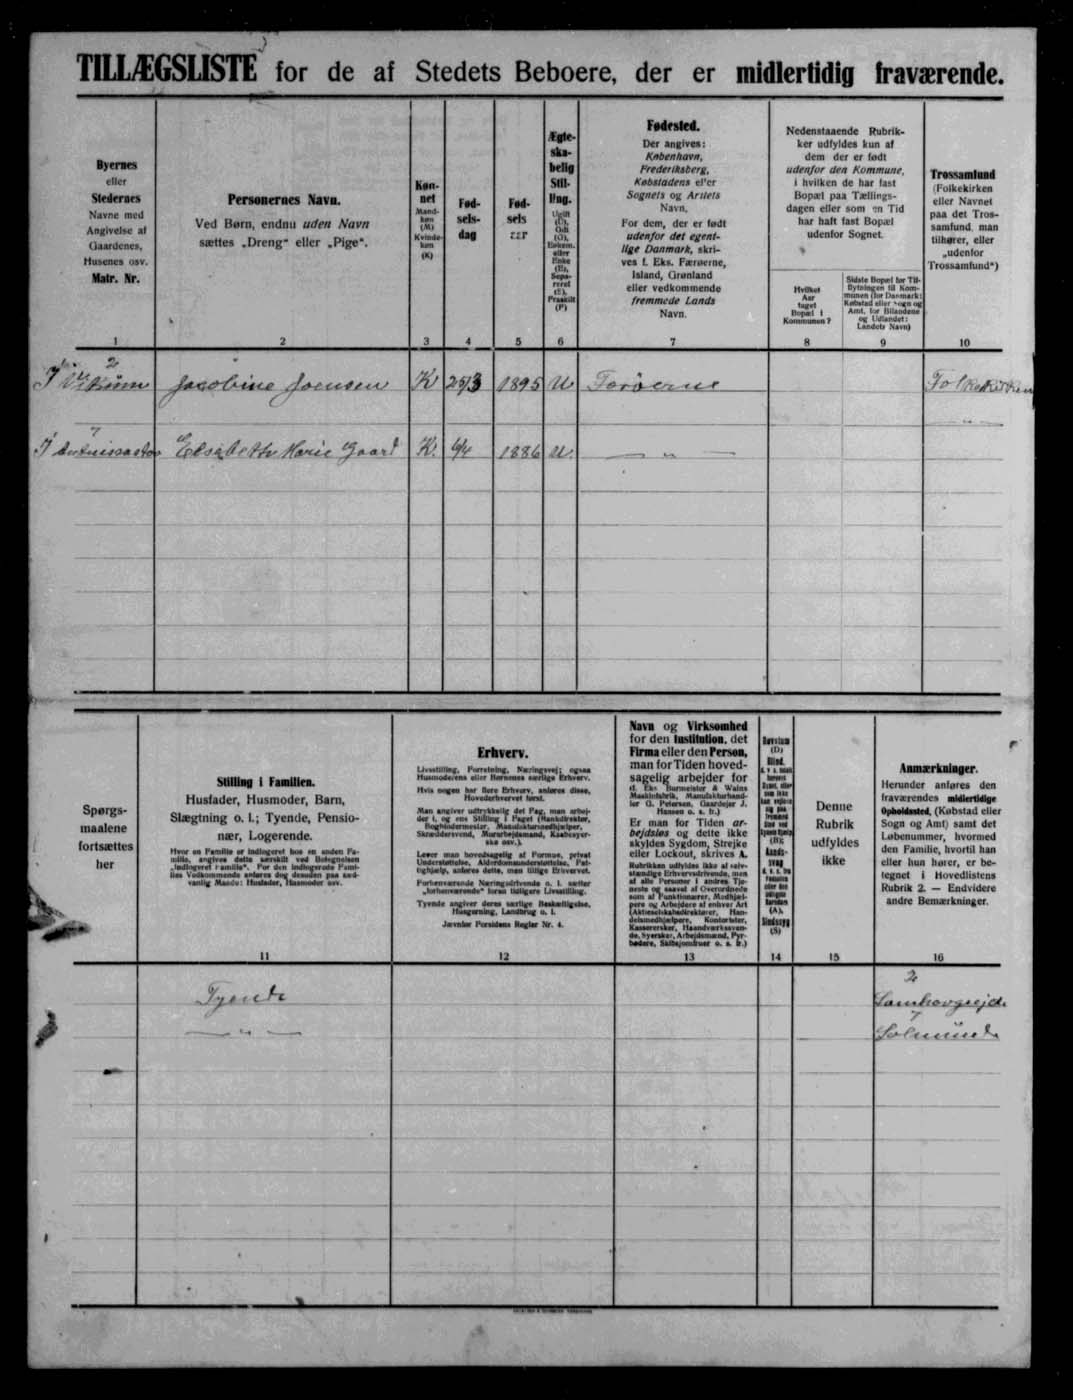 TILLÆGSLISTE for de af Stedets Beboere, der er midlertidig fraværende.
Byernes
eller
Stedernes
Navne med
Angivelse af
Gaardenes,
Husenes osv.
Matr. Nr.
Personernes Navn.
Ved Børn, endnu uden Navn
sættes „Dreng“ eller „Pige“.
Køn-
net
Mand-
køn
(M)
Kvinde-
køn
(K)
Fød-
sels-
dag
Fød-
sels
Ægte-
ska-
belig
Stil-
ling.
Ugift
(U),
Gift
(G),
Enkem.
eller
Enke
(E),
Sepa-
reret
(S),
Fraskilt
(F)
Fødested.
Der angives:
København,
Frederiksberg,
Købstadens eller
Sognets og Amtets
Navn.
For dem, der er født
udenfor det egent-
lige Danmark, skri-
ves f. Eks. Færøerne,
Island, Grønland
eller vedkommende
fremmede Lands
Navn.
Nedenstaaende Rubrik-
ker udfyldes kun af
dem der er født
udenfor den Kommune,
i hvilken de har fast
Bopæl paa Tællings-
dagen eller som en Tid
har haft fast Bopæl
udenfor Sognet.
Hvilket
Aar
taget
Bopæl i
Kommunen?
Sidste Bopæl før Til-
flytningen til Kom-
munen (for Danmark:
Købstad eller Sogn og
Amt, for Bilandene
og Udlandet:
Landets Navn)
Trossamfund
(Folkekirken
eller Navnet
paa det Tros-
samfund, man
tilhører, eller
„udenfor
Trossamfund“)
1 2 3 4 5 6 7 8 9 10
2
Jacobine Joensen K 25/3 1895 U Færøerne Folkekirken
7
Elsabeth Marie Gaard K. 6/4 1886 U. — „ — — „ —
Spørgs-
maalene
fortsættes
her
Stilling i Familien.
Husfader, Husmoder, Barn,
Slægtning o. l.; Tyende, Pensio-
nær, Logerende.
Hvor en Familie er indlogeret hos en anden Fa-
milie, angives dette særskilt ved Betegnelsen
„indlogeret Familie“. For den indlogerede Fami-
lies Vedkommende anføres dog desuden paa sæd-
vanlig Maade: Husfader, Husmoder osv.
Erhverv.
Livsstilling, Forretning, Næringsvej; ogsaa
Husmoderens eller Børnenes særlige Erhverv.
Hvis nogen har flere Erhverv, anføres disse,
Hovederhvervet først.
Man angiver udtrykkelig det Fag, man arbej-
der i, og ens Stilling i Faget (Bankdirektør,
Bogbindermester, Manufakturhandlhjælper,
Skræddersvend, Murarbejdsmand, Kaabesyer-
ske osv.).
Lever man hovedsagelig af Formue, privat
Understøttelse, Alderdomsunderstøttelse, Fat-
tighjælp, anføres dette, men tillige Erhvervet.
Forhenværende Næringsdrivende o. l. sætter
„forhenværende“ foran tidligere Livsstilling.
Tyende angiver deres særlige Beskæftigelse,
Husgerning, Landbrug o. l.
Jævnfør Forsidens Regler Nr. 4.
Navn og Virksomhed
for den Institution, det
Firma eller den Person,
man for Tiden hoved-
sagelig arbejder for
(f. Eks. Burmeister & Wains
Maskinfabrik, Manufakturhand-
ler G. Petersen, Gaardejer J.
Hansen o. s. fr.)
Er man for Tiden ar-
bejdsløs og dette ikke
skyldes Sygdom, Strejke
eller Lockout, skrives A.
Rubrikken udfyldes ikke af selv-
stændige Erhvervsdrivende, men
af alle Personer i andres Tje-
neste og saavel af Overordnede
som af Funktionærer, Medhjæl-
pere og Arbejdere af enhver Art
(Aktieselskabsdirektører, Han-
delsmedhjælpere, Kontorister,
Kassererske, Haandværkssven-
de, Syersker, Arbejdsmænd, Fyr-
bødere, Skibsjomfruer o. s. fr.)
Døvstum
(D)
Blind,
(B);
Aands-
svag
(A),
Sindssyg
(S)
Denne
Rubrik
udfyldes
ikke
Anmærkninger.
Herunder anføres den
fraværendes midlertidige
Opholdssted, (Købstad eller
Sogn og Amt) samt det
Løbenummer, hvormed
den Familie, hvortil han
eller hun hører, er be-
tegnet i Hovedlistens
Rubrik 2. — Endvidere
andre Bemærkninger.
11 12 13 14 15 16
2
Tyende
7
— „ — Solmunde